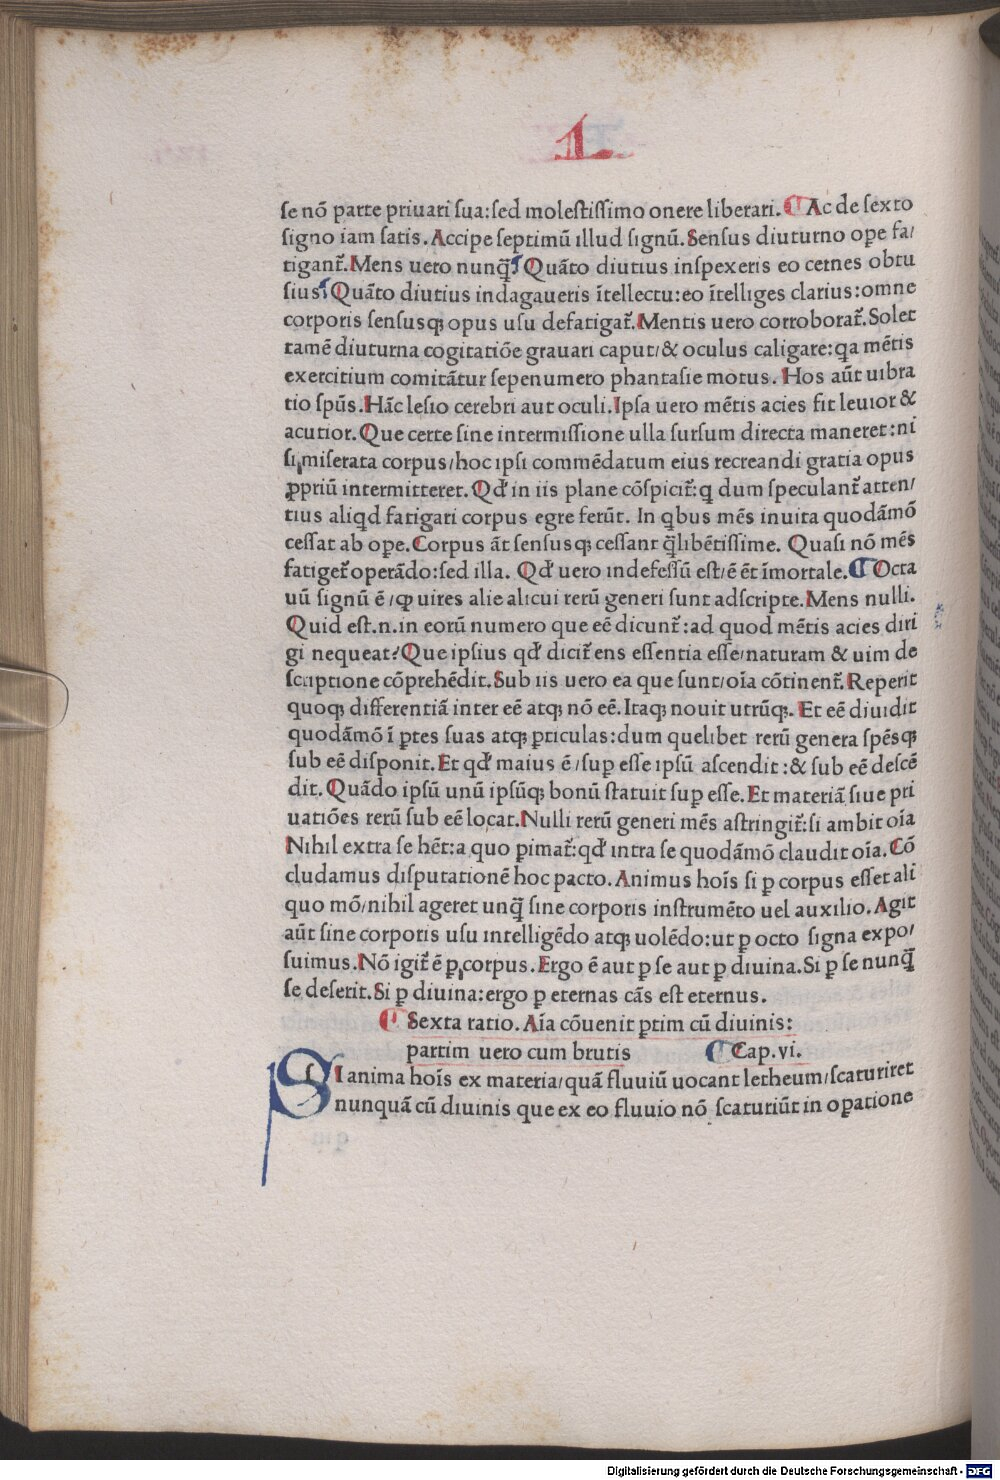 L
ſe nõ parte priuari ſua:ſed moleſtiſſimo onere liberari. ¶ Ac de ſexto
ſigno iam ſatis. Accipe ſeptimũ illud ſignũ. Senſus diuturno ope fa/
tigant̃. Mens uero nunq̃. Quãto diutius inſpexeris eo cernes obtu
ſius. Quãto diutius indagaueris ĩtellectu:eo ĩtelliges clarius:omne
corporis ſenſusqꝫ opus uſu defatigat̃. Mentis uero corroborat̃. Solet
tamẽ diuturna cogitatiõe grauari caput/& oculus caligare:qa mẽtis
exercitium comitãtur ſepenumero phantaſie motus. Hos aũt uibra
tio ſpũs. Hãc leſio cerebri aut oculi. Ipſa uero mẽtis acies fit leuior &
acutior. Que certe ſine intermiſſione ulla ſurſum directa maneret:ni
ſi miſerata corpus/hoc ipſi commẽdatum eius recreandi gratia opus
ꝓpriũ intermitteret. Qđ in iis plane cõſpicit̃:q dum ſpeculant̃ atten/
tius aliqd fatigari corpus egre ferũt. In qbus mẽs inuita quodãmõ
ceſſat ab oꝑe. Corpus ãt ſenſusqꝫ ceſſant q̃libẽtiſſime. Quaſi nõ mẽs
fatiget̃ operãdo:ſed illa. Qđ uero indefeſſũ eſt/ẽ ẽt ĩmortale. ¶ Octa
uũ ſignũ ẽ/ꝙ uires alie alicui rerũ generi ſunt adſcripte. Mens nulli.
Quid eſt.n.in eorũ numero que eẽ dicunt̃:ad quod mẽtis acies diri
gi nequeat? Que ipſius qđ dicit̃ ens eſſentia eſſe/naturam & uim de
ſcriptione cõprehẽdit. Sub iis uero ea que ſunt/oĩa cõtinent̃. Reperit
quoqꝫ differentiã inter eẽ atqꝫ nõ eẽ. Itaqꝫ nouit utrũqꝫ. Et eẽ diuidit
quodãmõ ĩ ꝑtes ſuas atqꝫ ꝑticulas:dum quelibet rerũ genera ſpẽsqꝫ
ſub eẽ diſponit. Et qđ maius ẽ/ſuꝑ eſſe ipſũ aſcendit:& ſub eẽ deſcẽ
dit. Quãdo ipſũ unũ ipſũqꝫ bonũ ſtatuit ſuꝑ eſſe. Et materiã ſiue pri
uatiões rerũ ſub eẽ locat. Nulli rerũ generi mẽs aſtringit̃:ſi ambit oĩa
Nihil extra ſe hẽt:a quo ꝑimat̃:qđ intra ſe quodãmõ claudit oĩa. Cõ
cludamus diſputationẽ hoc pacto. Animus hoĩs ſi ꝑ corpus eſſet ali
quo mõ/nihil ageret unq̃ ſine corporis inſtrumẽto uel auxilio. Agit
aũt ſine corporis uſu intelligẽdo atqꝫ uolẽdo:ut ꝑ octo ſigna expo/
ſuimus. Nõ igit̃ ẽ ꝑ corpus. Ergo ẽ aut ꝑ ſe aut ꝑ diuina. Si ꝑ ſe nunq̃
ſe deſerit. Si ꝑ diuina:ergo ꝑ eternas cãs eſt eternus.
¶ Sexta ratio. Aĩa cõuenit ꝑtim cũ diuinis:
partim uero cum brutis ¶ Cap.vi.
SI anima hoĩs ex materia/quã fluuiũ uocant letheum/ſcaturiret
nunquã cũ diuinis que ex eo fluuio nõ ſcaturiũt in oꝑatione
Digitalisierung gefördert durch die Deutsche Forschungsgemeinschaft - DFG